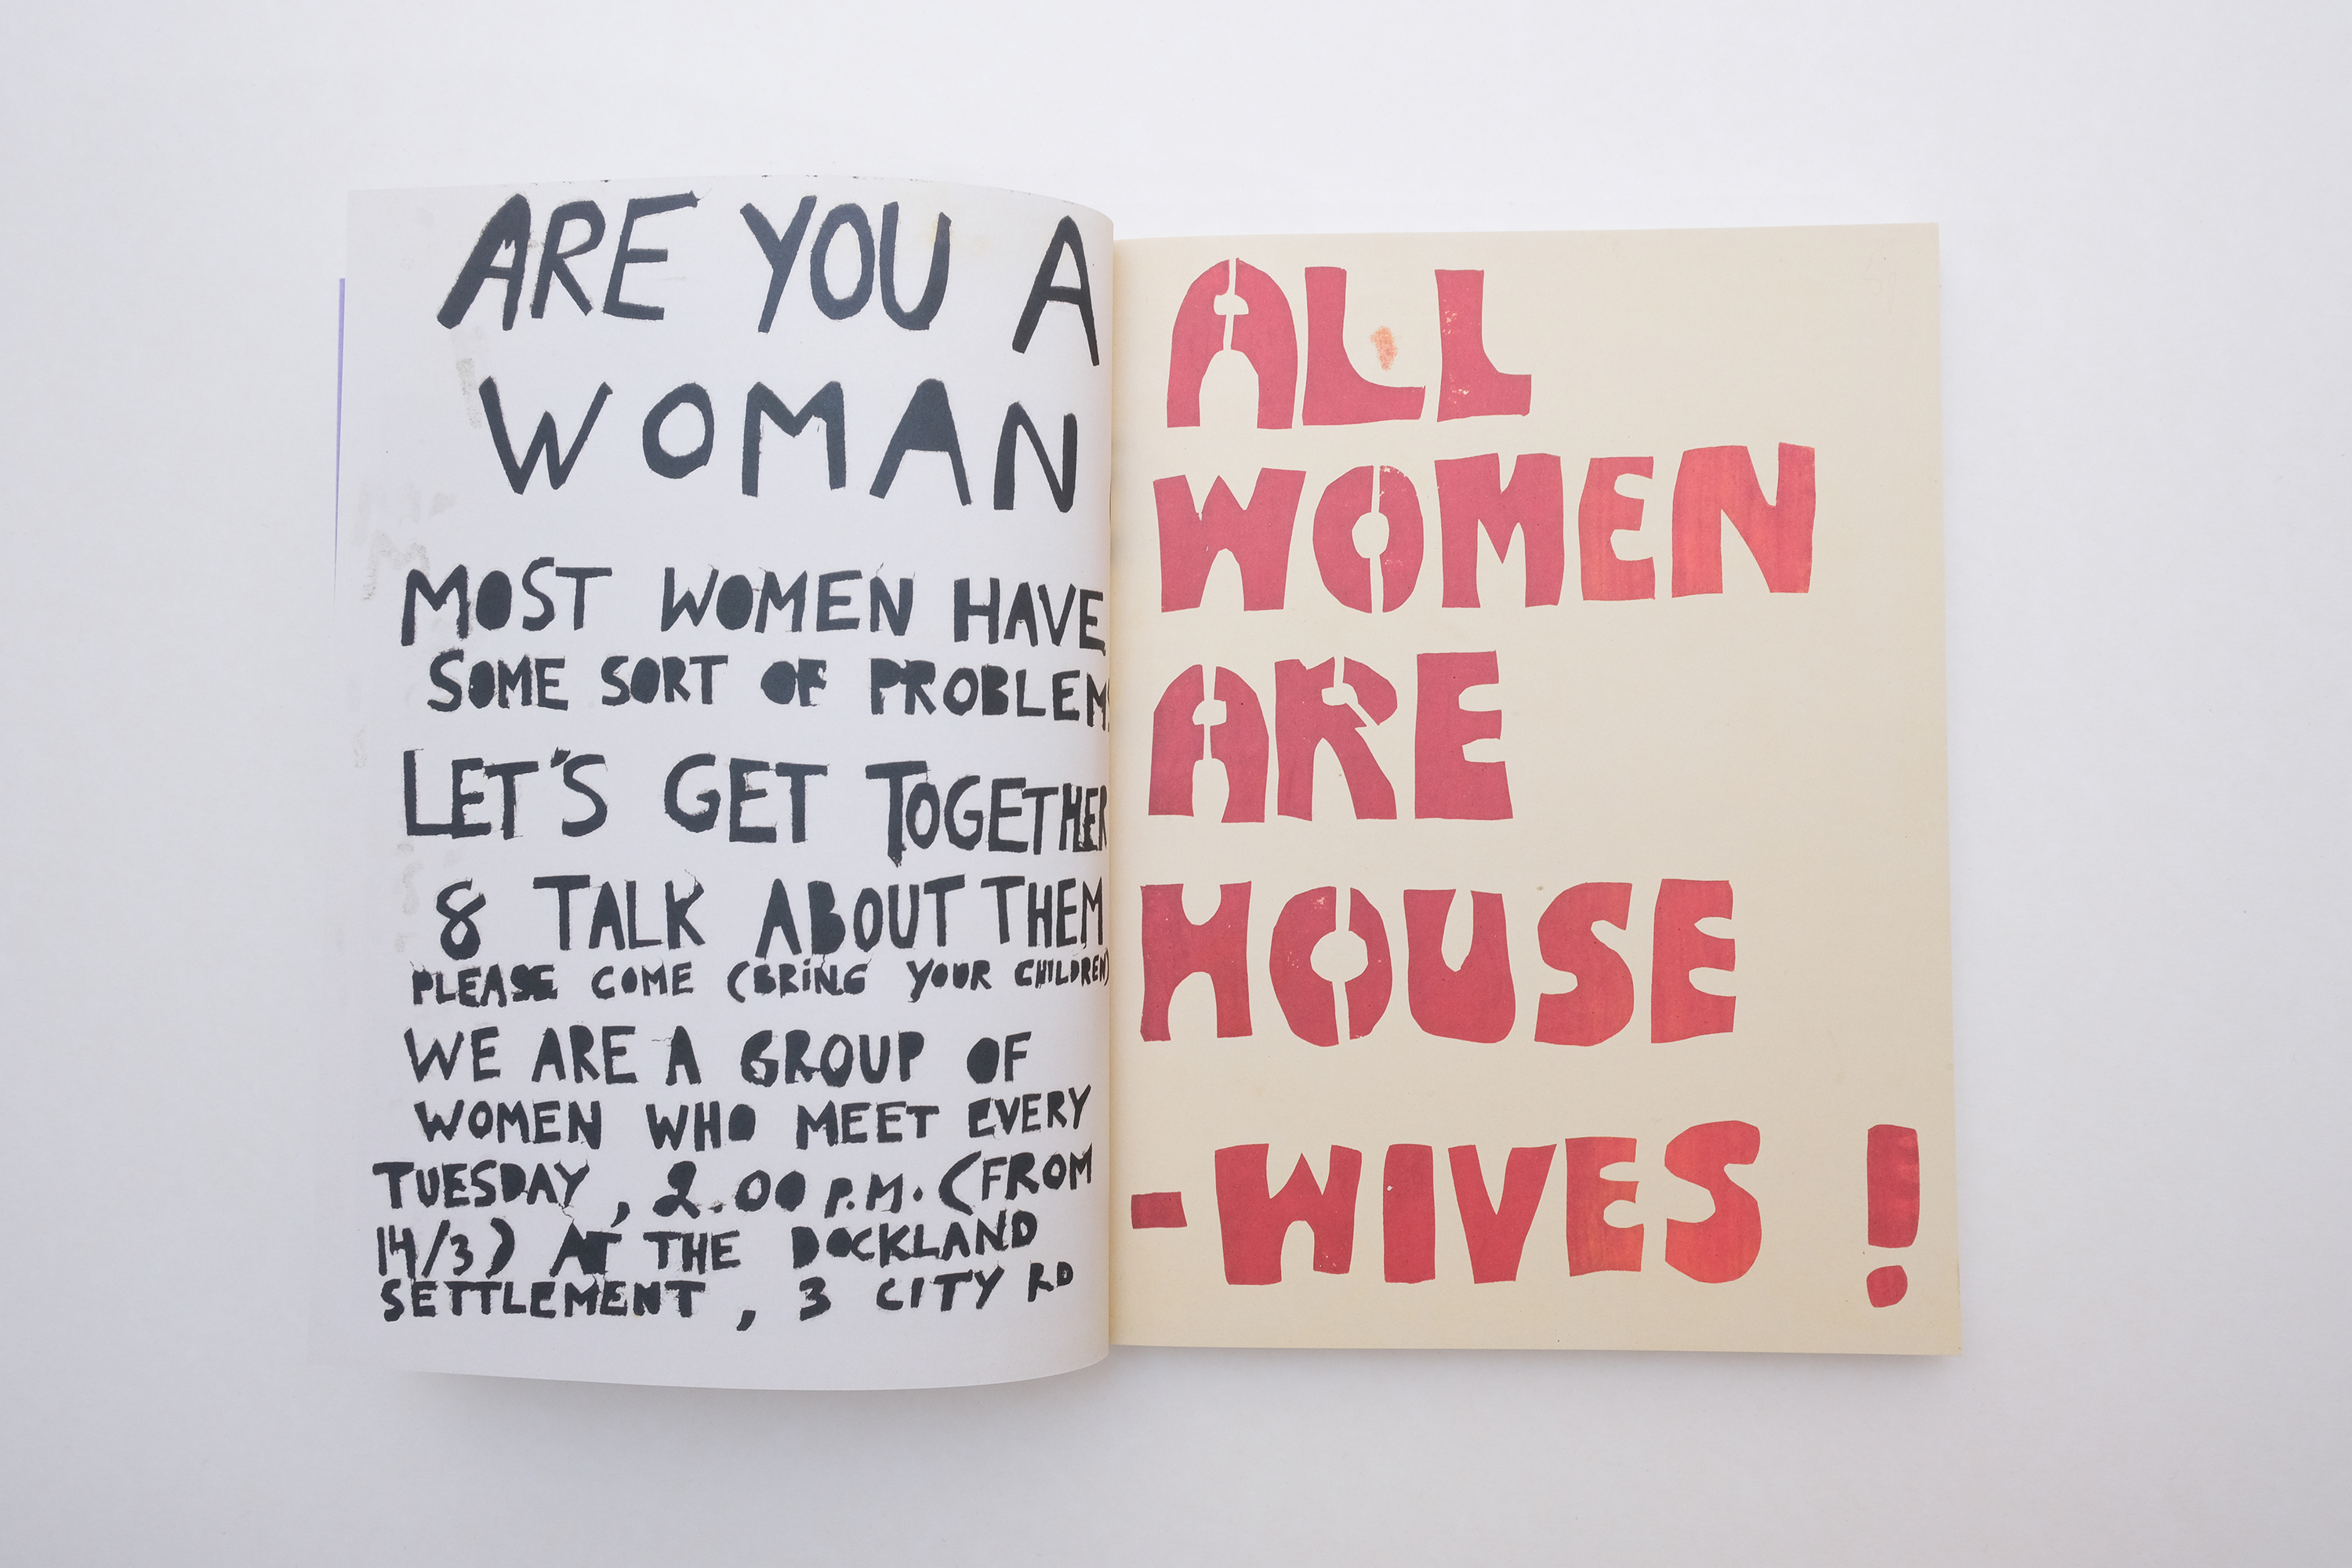 ARE YOU A
WOMAN
MOST WOMEN HAVE
SOME SORT OF PROBLEMS
LET'S GET TOGETHER
& TALK ABOUT THEM
PLEASE COME (BRiNG YOUR CHILDREN)
WE ARE A GROUP OF
WOMEN WHO MEET EVERY
TUESDAY, 2.00 P.M. (FROM
14/3) AT THE DOCKLAND
SETTLEMENT, 3 CITY RD
ALL
WOMEN
ARE
HOUSE
-WIVES!